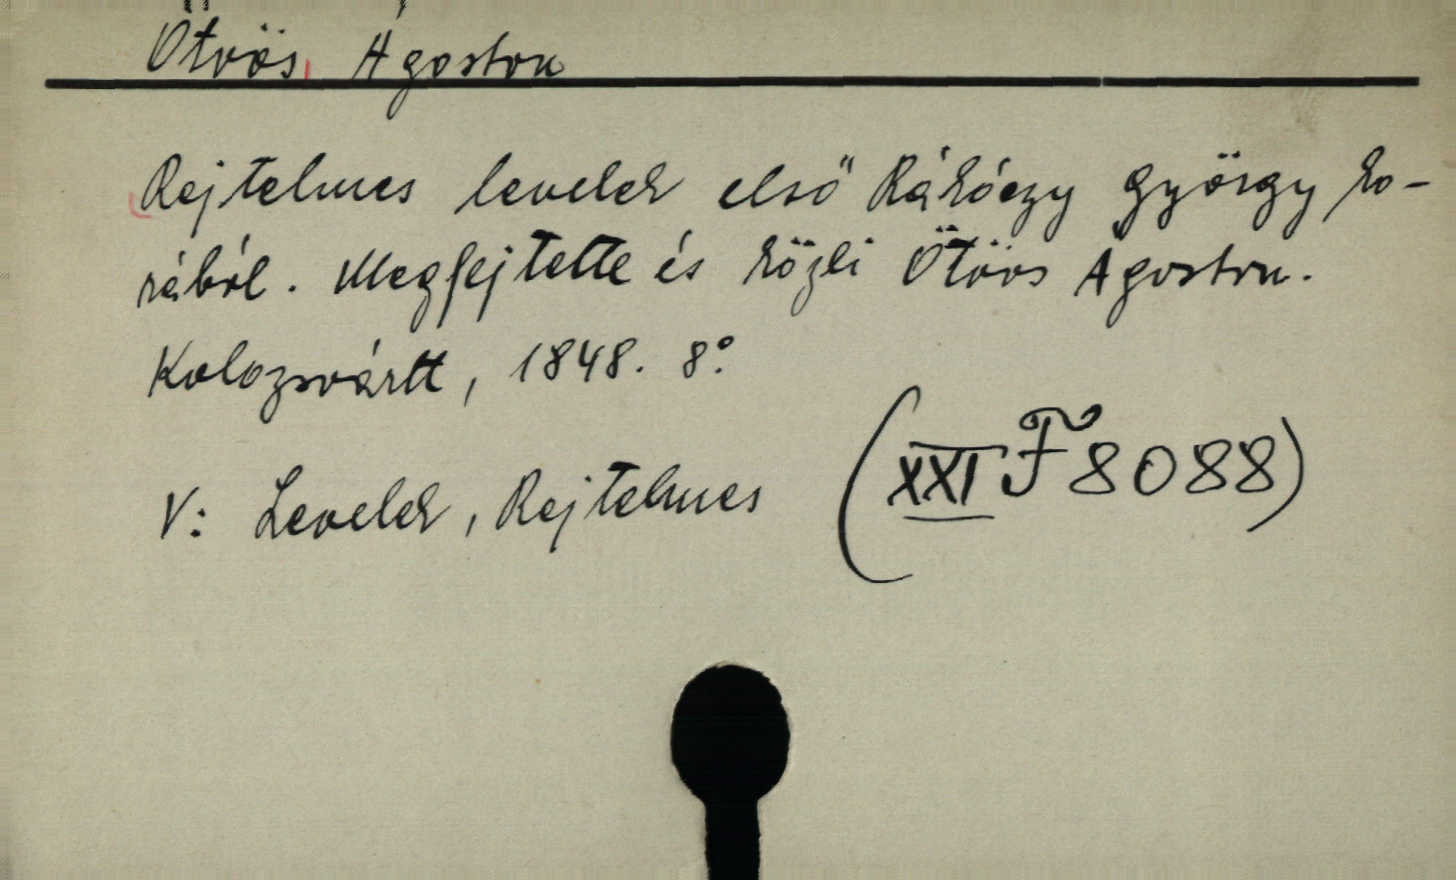 Ötvös, Ágoston
Rejtelmes levelek első Rákóczy György ko-
rából. Megfejtette és közli Ötvös Ágoston.
Kolozsvártt, 1848. 8°.
V: Levelek, Rejtelmes (XXI F 8088)